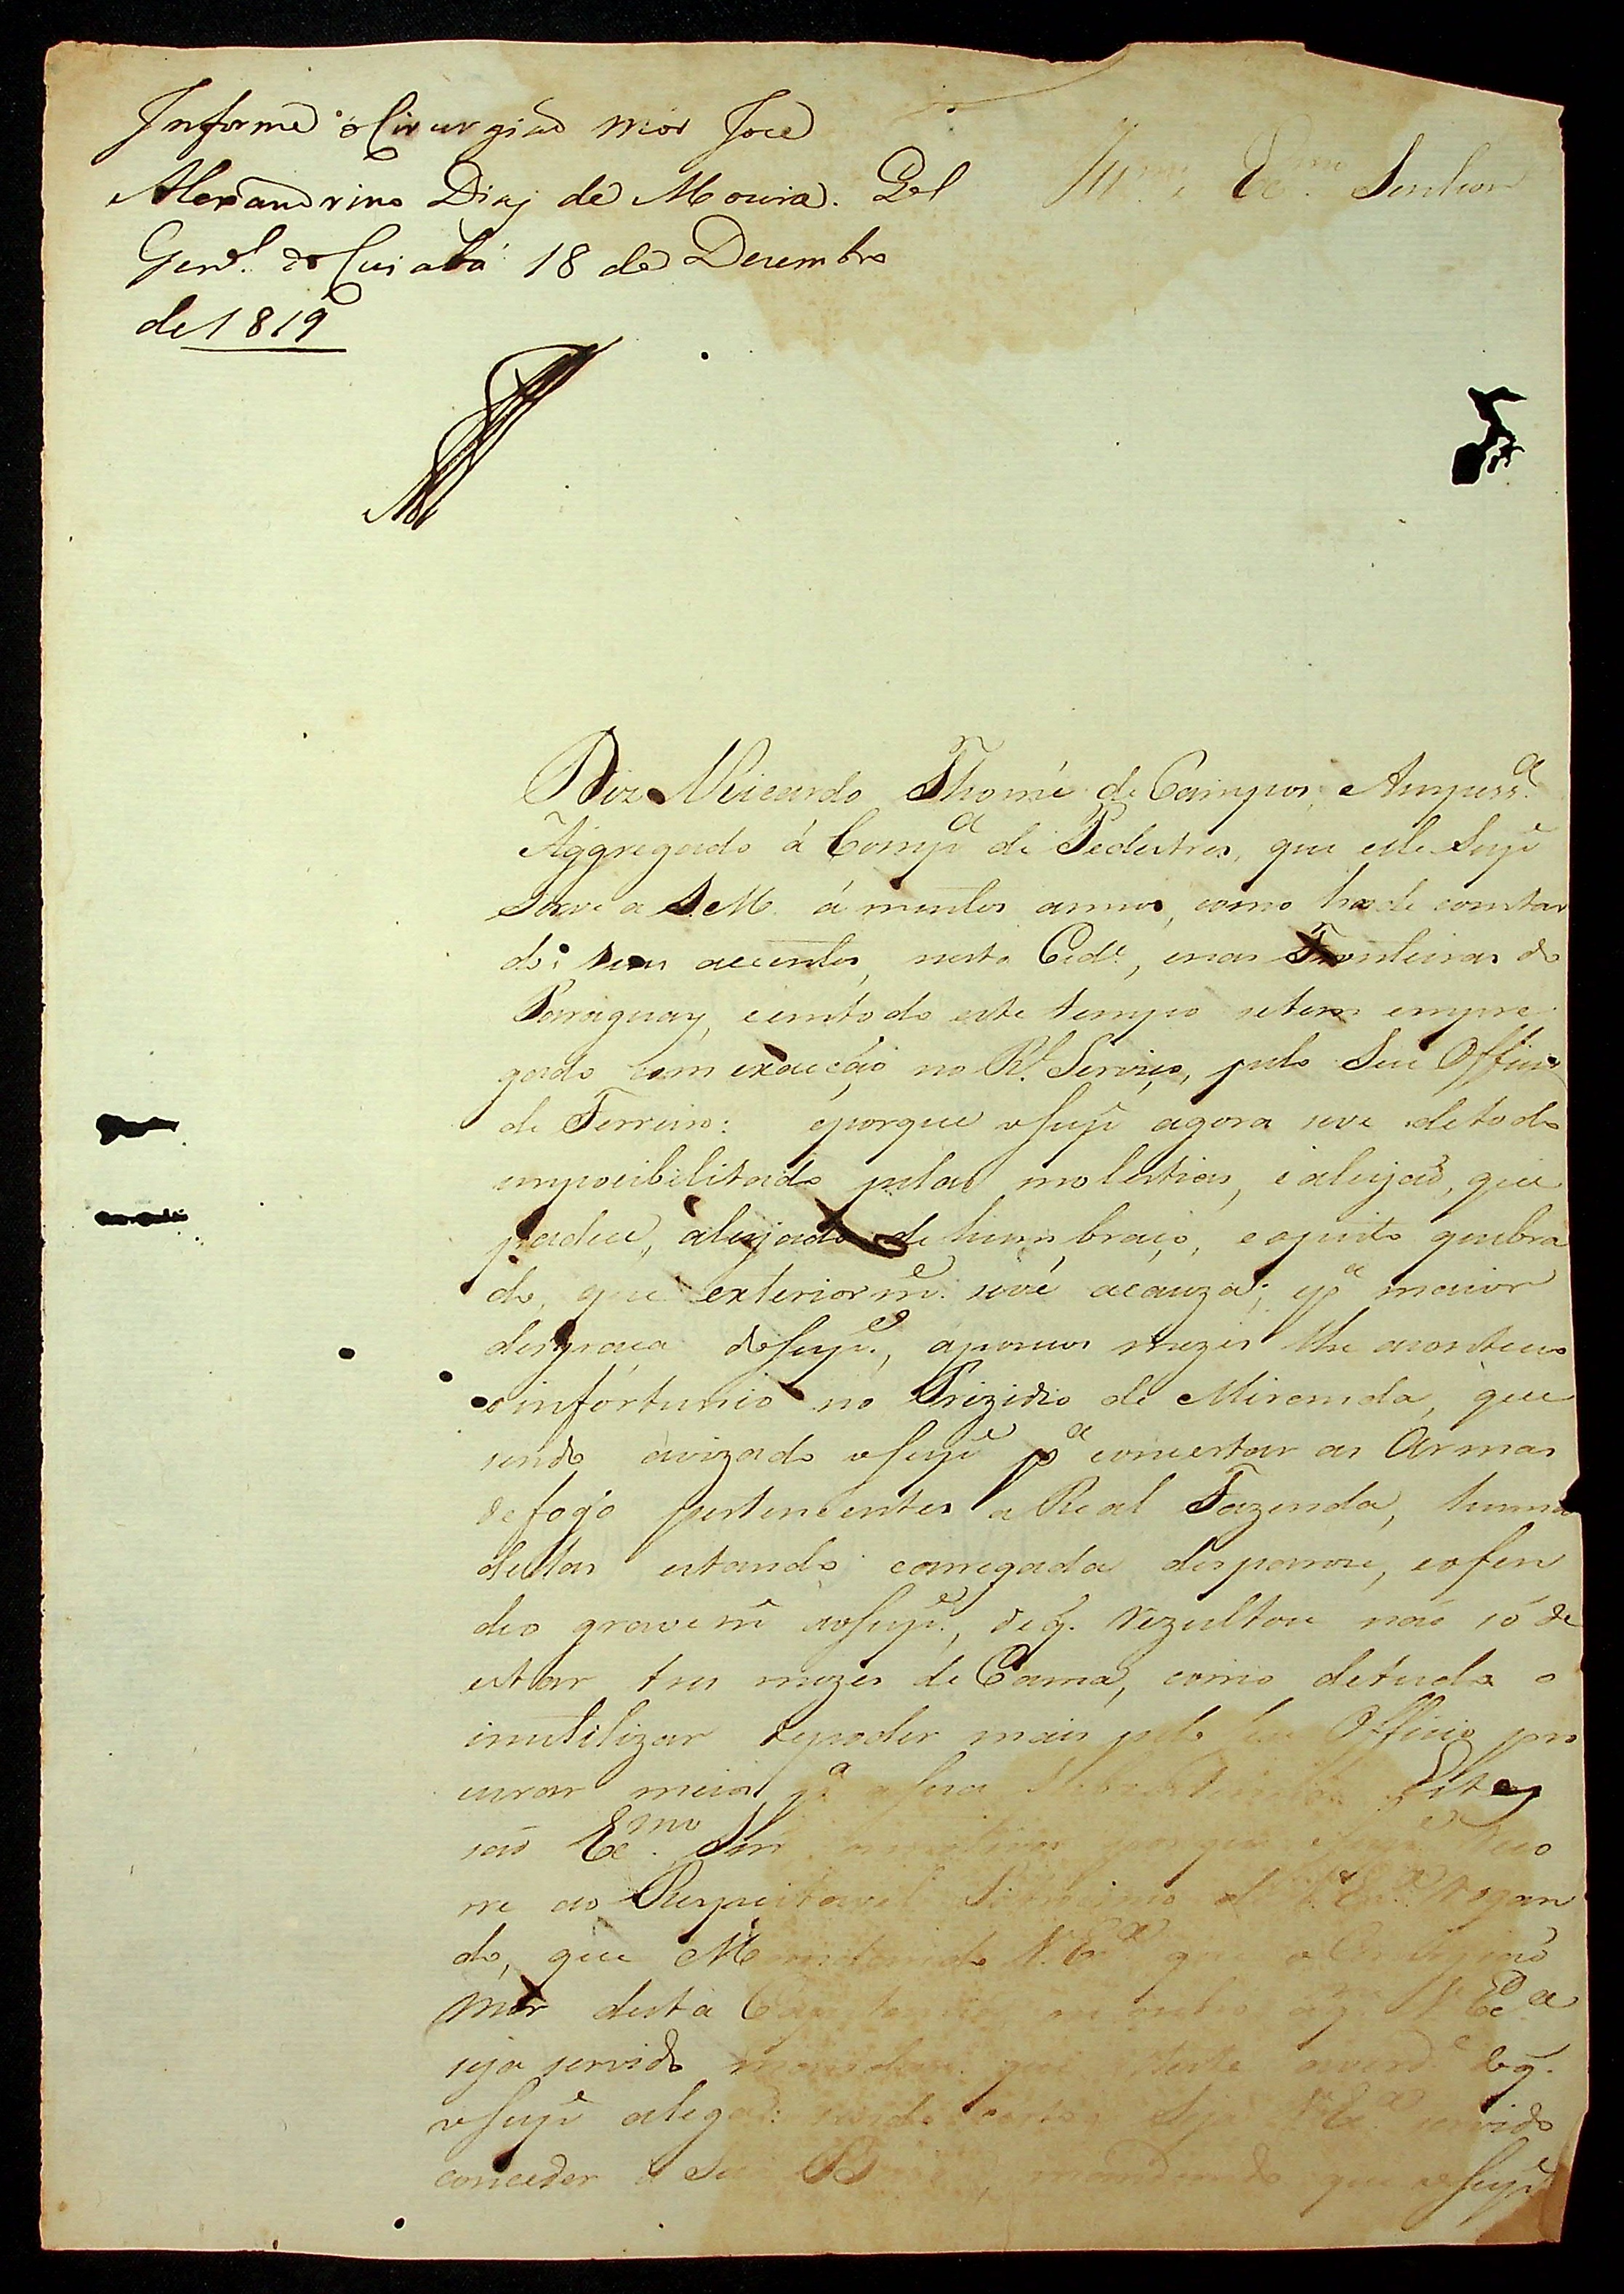 Informe o Cirurgiaõ mor Joce
Alexandrino Dias de Moura. Qel
Genl. do Cuiabá 18 de Desembro
de 1819
Illmo. Exmo. Senhor
Diz Ricardo Thomé de Campos, Anspessa.
Aggregado á Compa de Pedestres, que elle Supe
Serve a S.M. á muitos annos, como hade constar
de seus accentos, nesta Cide, enas Fronteiras do
Paraguay, eemtodo este tempo setem empre
gado com exacçáo no Rl. Serviço, pelo Seu Officio
de Ferreiro: eporque oSupe agora seve detodo
impocibilitado pelas molestias, ealeijaõ, que
padece, aleijado de hum braço, eopeito quebra
do, que exteriorme. sevê acauza; epa maior
desgraça doSupe., apoucos mezes lhe aconteceo
o infórtunio no Prizidio de Miranda, que
sendo avizado oSupe pa concertar as Armas
defogo pertencentes a Real Fazenda, huma
dellas estando carregada desparou, eofen
deo graveme aoSupe., deq. rezultou naõ só de
estar tres mezes de Cama, como detudo o
inutilizar depoder mais pelo seu Officio pro
curar meios pa asua Subsistencia Estes
saõ Exmo. Snr os motivos porque oSupe reco
rre ao Respeitavel Patrocinio de V.Exa. rogan
do, que Mandando V.Exa que o Cirurgiaõ
Mór desta Capitania, ou outro aq. V.Exa
seja servido mandar que ateste averde doq.
oSupe alega: sendo certo, Seja V.Exa. servido
conceder o Seu, mandando que oSupe